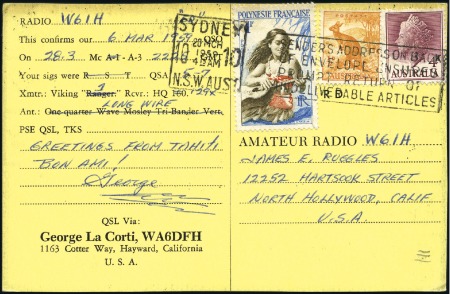 RADIO W6IH
This confirms our 6 MAR 1959 QSO
On 28.3 Mc A-1 - A-3
Your sigs were R S T QSA
Xmtr: Viking "Ranger" 2 Rcvr.: HQ 160
LONG WIRE
Ant.: One-quarter Wave Mosley Vert.
PSE QSL, TKS
GREETINGS FROM TAHITI
BON AMI!
George
QSL Via:
George La Corti, WA6DFH
1163 Cotter Way, Hayward, California
U. S. A.
SYDNEY
1959
N.S.W. AUST
POLYNESIE FRANÇAISE
SENDERS ADDRESS ON BACK
OF ENVELOPE ENSURES
RETURN OF
ARTICLES
AUSTRALIA
AMATEUR RADIO W6IH
JAMES E. RUGGLES
12252 HARTSOOK STREET
NORTH HOLLYWOOD, CALIF
U.S.A.